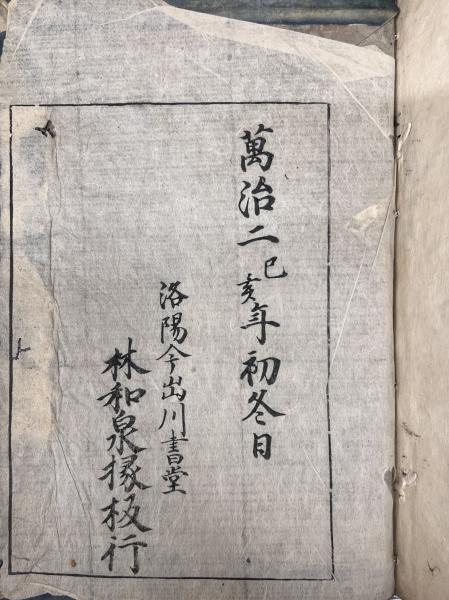 萬治二己亥年初冬日
洛陽今出川書堂
林和泉掾板行